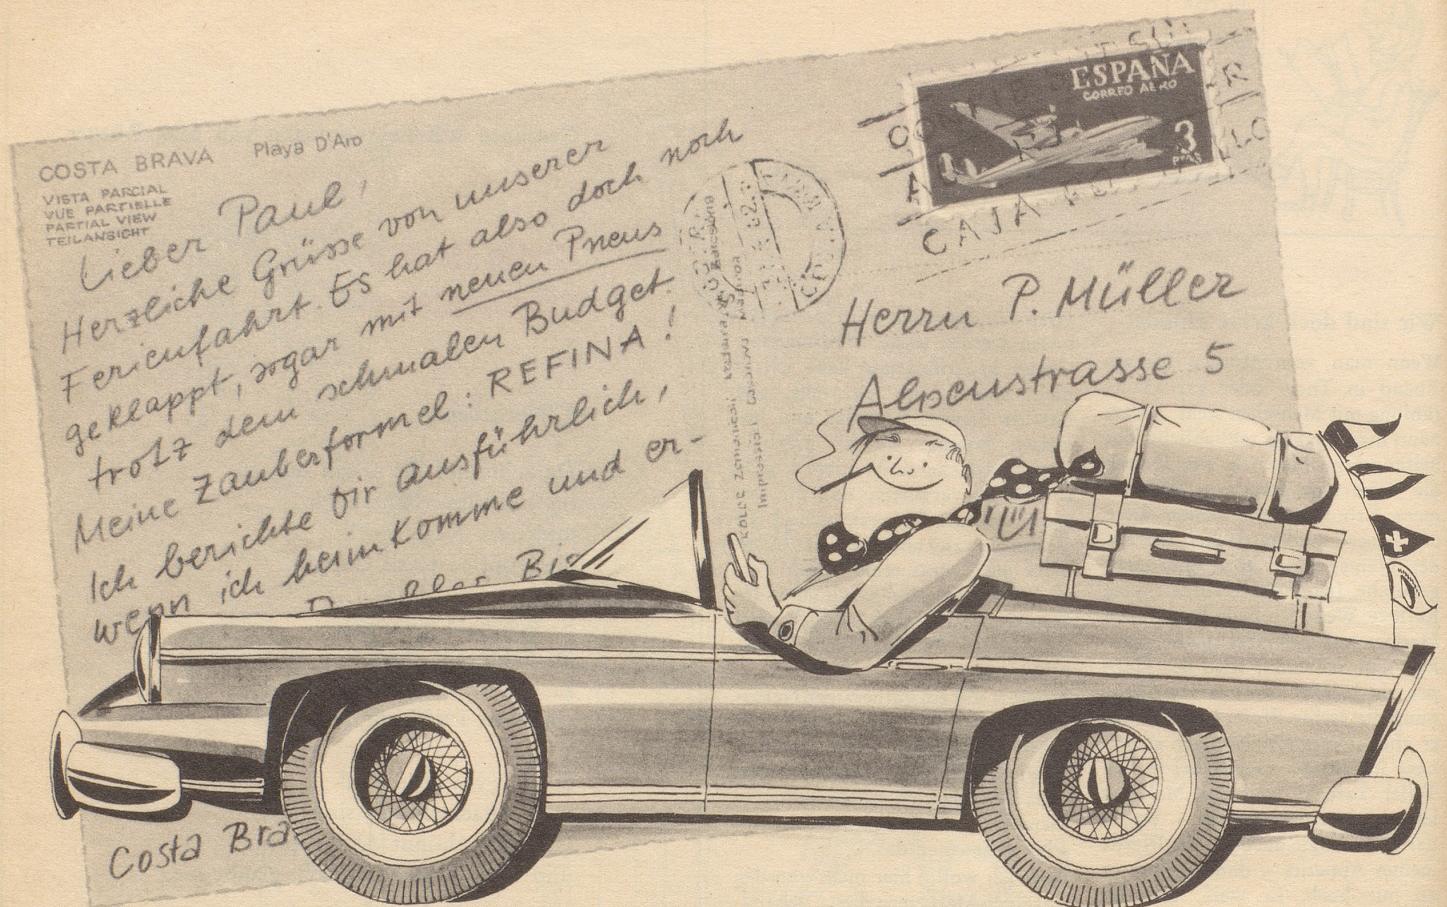 COSTA BRAVA Playa D'Aro
VISTA PARCIAL
VUE PARTIELLE
PARTIAL VIEW
TEILANSICHT
Lieber Paul!
Herzliche Grüsse von unserer
Ferienfahrt. Es hat also doch noch
geklappt, sogar mit neuen Pneus
trotz dem schmalen Budget.
Meine Zauberformel: REFINA!
Ich berichte Dir ausführlich,
wenn ich heimkomme und er-
Costa Bra
ESPAÑA
CORREO AEREO
3
PTAS
CAJA
Herrn P. Müller
Alpenstrasse 5